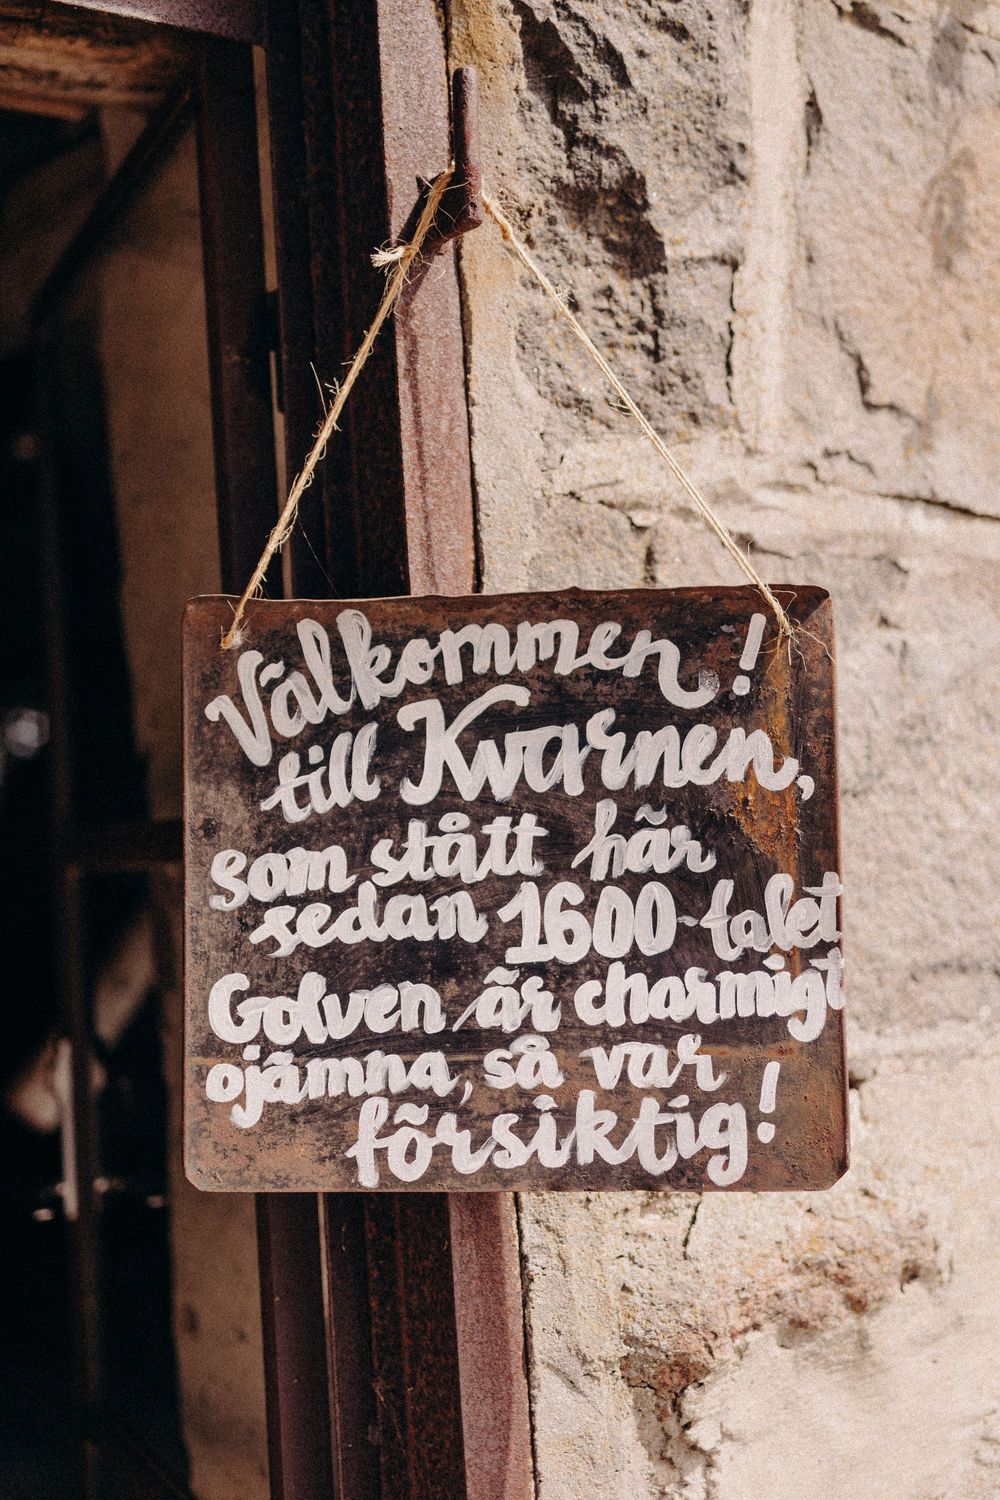 Välkommen!
till Kvarnen,
som stått här
sedan 1600-talet
Golven är charmigt
ojämna, så var
försiktig!